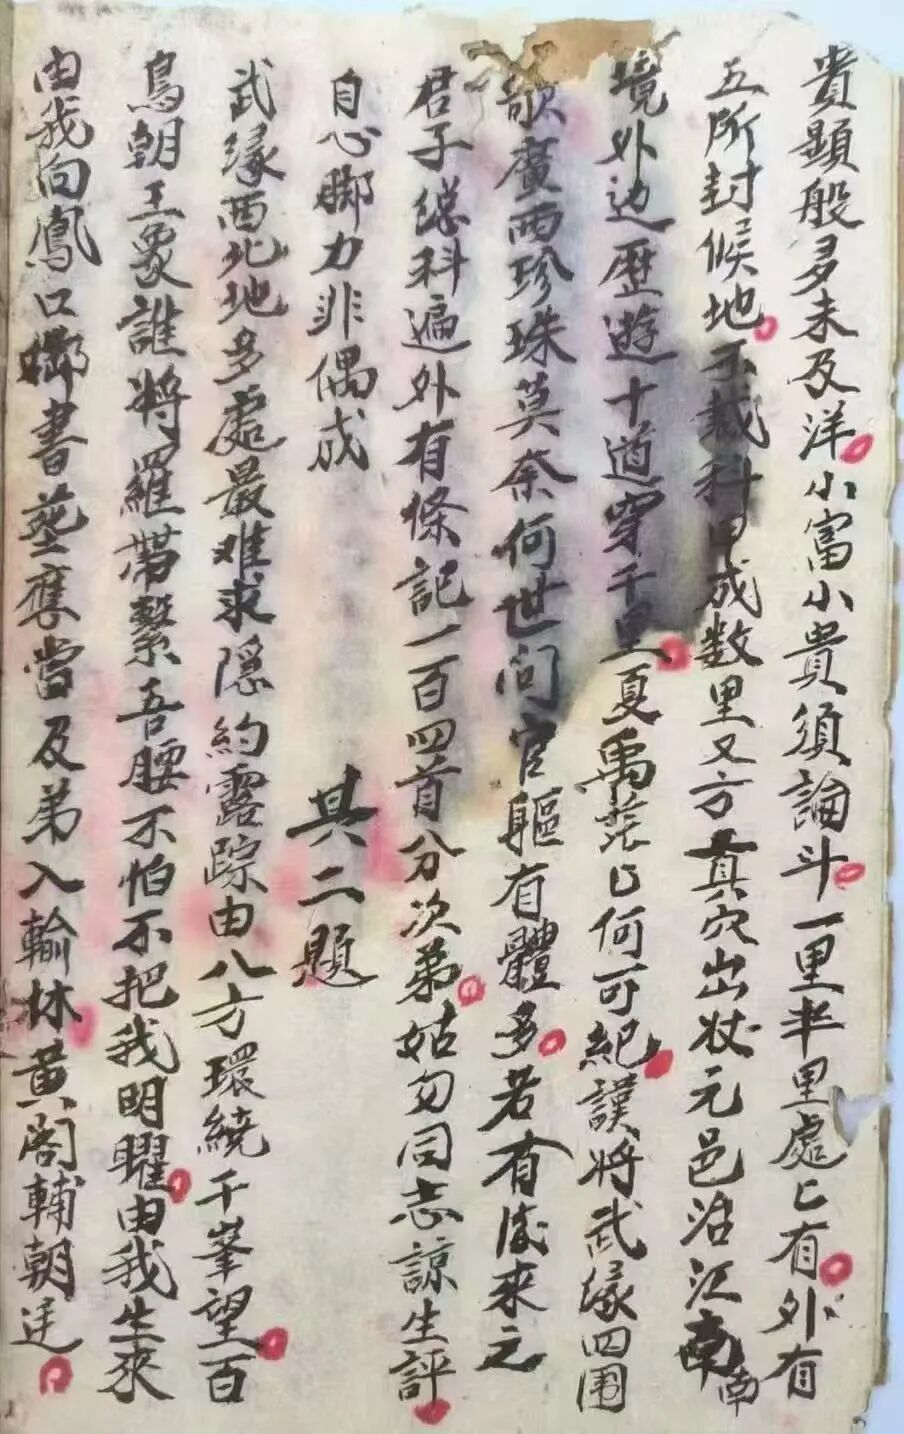 貴顯般多未及洋小富小貴須論斗一里半里處〻有外有
五所封候地不載科甲成数里又方真穴出状元邑治江南南
境外边歷遊十道穿千里夏禹茫〻何可紀謹将武缘四围
歌廣両珍珠莫奈何世间官軀有體多若有後來之
君子总科遍外有條記一百四首分次弟姑勿同志諒生評
自心脚力非偶成
其二題
武缘西北地多處最难求隠約露踪由八方環繞千峯望百
鳥朝王象誰将羅帶繫吾腰不怕不把我明曜由我生來
由我向鳳口啣書埊奪當及弟入輸林黄阁輔朝廷